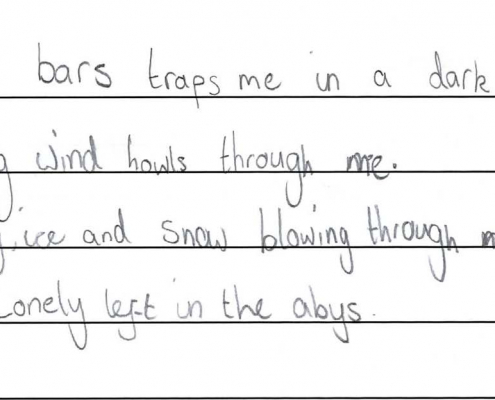 bars traps me in a dark
wind howls through me.
ice and snow blowing through
Lonely left in the abys.